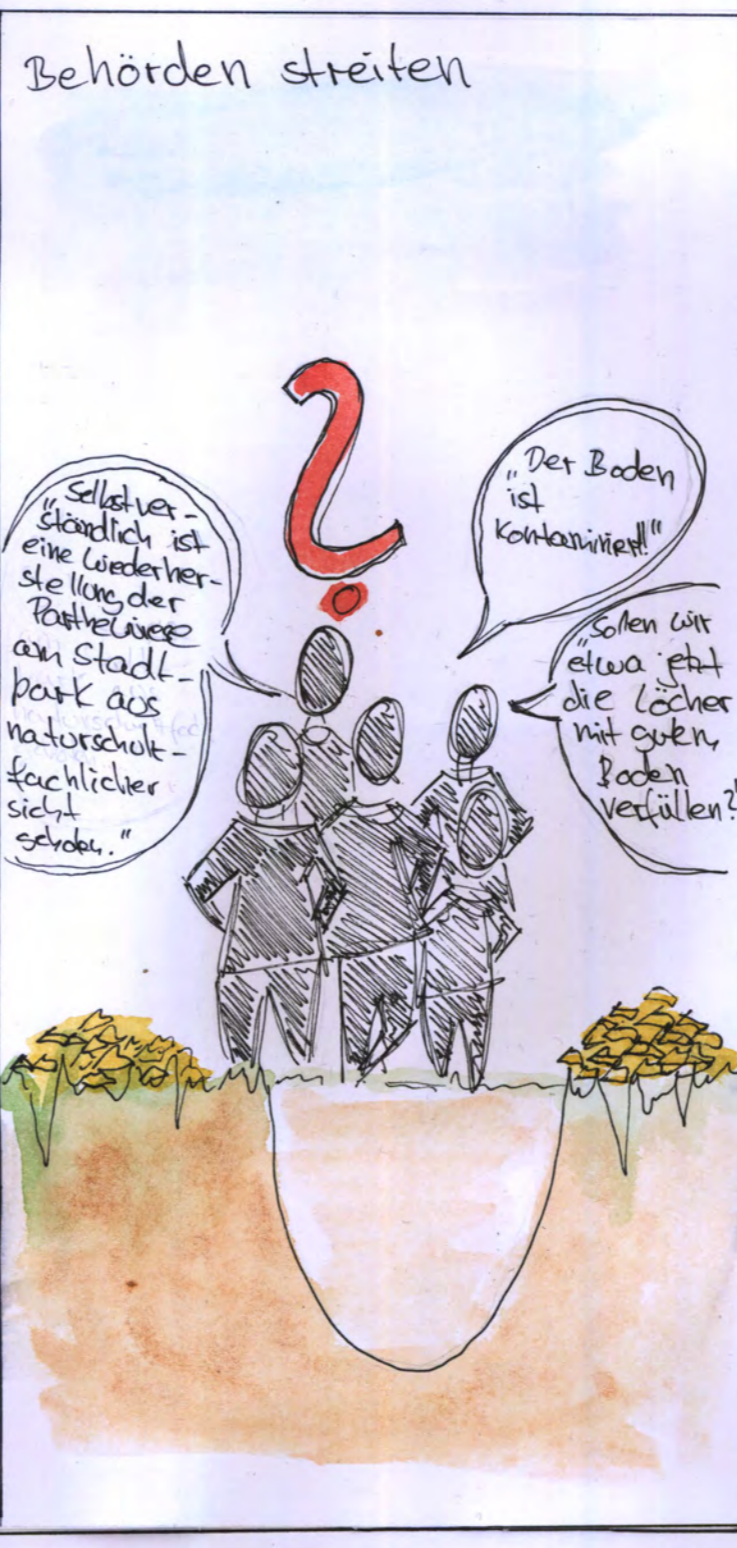 Behörden streiten
„Selbstver-
ständlich ist
eine Wiederher-
stellung der
Parthewiese
am Stadt-
park aus
naturschutz-
fachlicher
Sicht
geboten."
„Der Boden
ist
kontaminiert!"
„Sollen wir
etwa jetzt
die Löcher
mit gutem
Boden
verfüllen?"